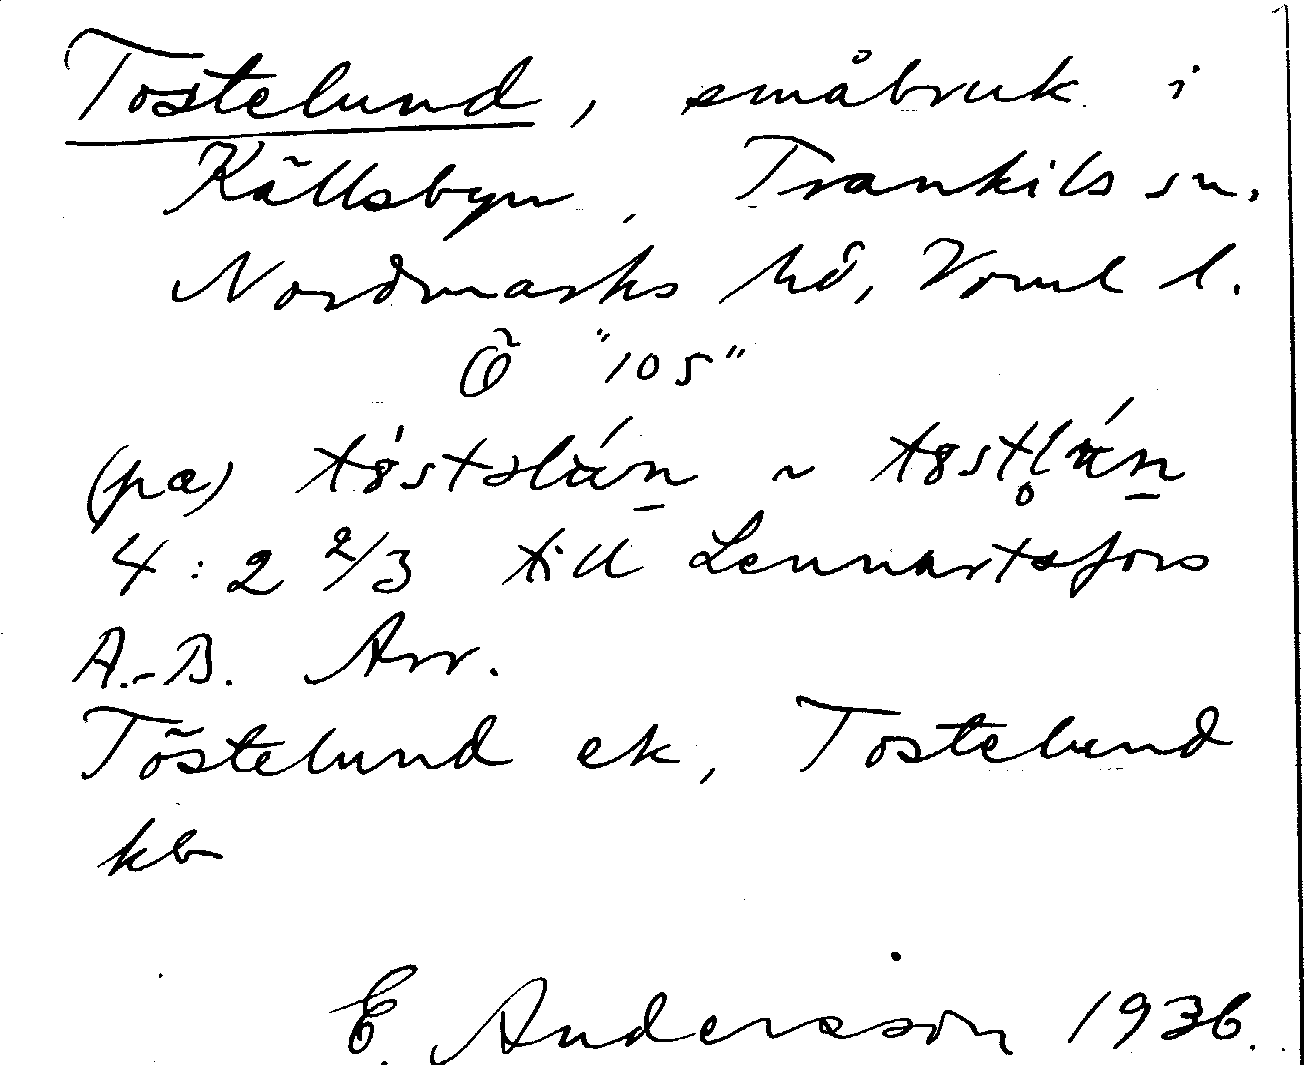 Tostelund, småbruk i
Källsbyn, Trankils sn.
Nordmarks hd, Värml l.
Ö "105"
(pα) tɵ́stəlún ~ tɵstl̥ún
4:2 2/3 till Lennartsfors
A.-B. Arr.
Töstelund ek, Tostelund
kb
E. Andersson 1936.